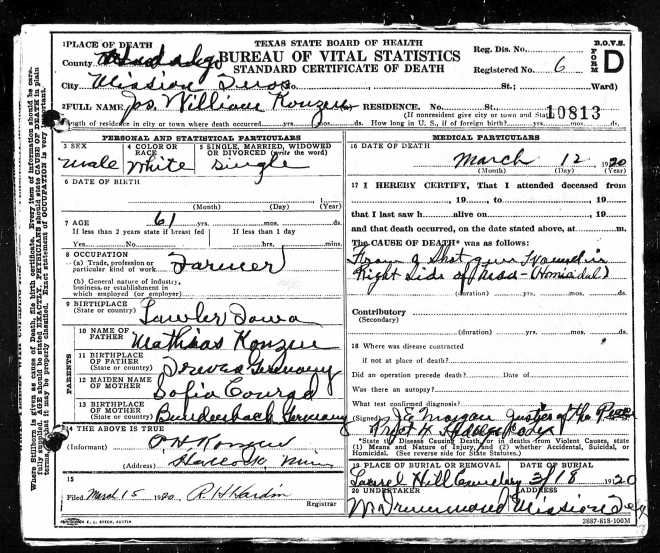 PLACE OF DEATH
TEXAS STATE BOARD OF HEALTH
BUREAU OF VITAL STATISTICS
STANDARD CERTIFICATE OF DEATH
Reg. Dis. No.
Registered No. 6
B.O.V.S.
FORM
D
County Hidalgo
City Mission Texas No. St.; Ward)
2 FULL NAME Jos. William Konzen RESIDENCE. No. St.
(If nonresident give city or town and State)
10813
Length of residence in city or town where death occurred yrs. mos. ds. How long in U. S., if of foreign birth? yrs. mos. ds.
PERSONAL AND STATISTICAL PARTICULARS
3 SEX
male
4 COLOR OR RACE
White
5 SINGLE, MARRIED, WIDOWED OR DIVORCED (write the word)
Single
6 DATE OF BIRTH
(Month) (Day) (Year)
7 AGE 61 yrs. mos. ds.
If less than 2 years state if breast fed If less than 1 day
Yes No hrs. mins.
8 OCCUPATION
(a) Trade, profession or particular kind of work Farmer
(b) General nature of industry, business, or establishment in which employed (or employer)
9 BIRTHPLACE
(State or country) Lawler Iowa
PARENTS
10 NAME OF FATHER Mathias Konzen
11 BIRTHPLACE OF FATHER
(State or country) Germany
12 MAIDEN NAME OF MOTHER Sofia Conrad
13 BIRTHPLACE OF MOTHER
(State or country) Bundenbach Germany
14 THE ABOVE IS TRUE
(Informant) Konzen
(Address) Hancock Minn
15
Filed March 15 1920 R H Hardin
Registrar
MEDICAL PARTICULARS
16 DATE OF DEATH
March 12 1920
(Month) (Day) (Year)
17 I HEREBY CERTIFY, That I attended deceased from
, 19 , to , 19
that I last saw h alive on , 19
and that death occurred, on the date stated above, at m.
The CAUSE OF DEATH* was as follows:
From a Shot gun Wound in
Right Side of Head - (Homicidal)
(duration) yrs. mos. ds.
Contributory
(Secondary)
(duration) yrs. mos. ds.
18 Where was disease contracted
if not at place of death?
Did an operation precede death? Date of
Was there an autopsy?
What test confirmed diagnosis?
(Signed) J E Morgan Justice of the Peace
Prect 4 Hidalgo Co Tex
*State Disease Causing Death, or in deaths from Violent Causes, state
(1) Means and Nature of Injury, and (2) whether Accidental, Suicidal, or
Homicidal. (See reverse side for State Statutes.)
19 PLACE OF BURIAL OR REMOVAL DATE OF BURIAL
Laurel Hill Cemetery 3/18 1920
20 UNDERTAKER ADDRESS
Drummond Mission Tex
2887-818-100M
E. L. STECK, AUSTIN